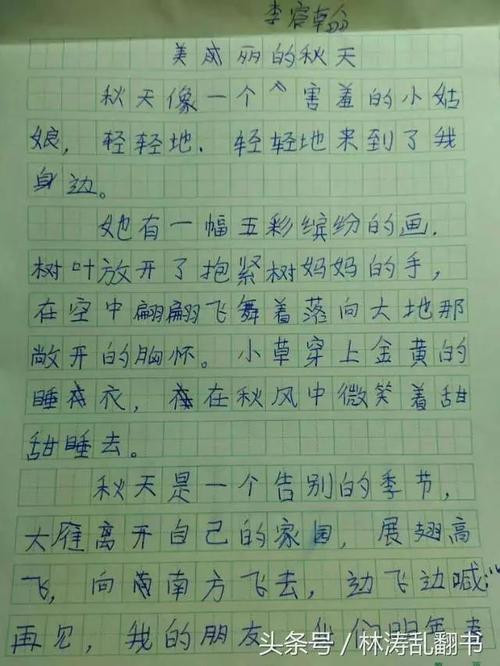 李宸翰
美丽的秋天
秋天像一个害羞的小姑
娘，轻轻地．轻轻地来到了我
身边。
她有一幅五彩缤纷的画．
树叶放开了抱紧树妈妈的手，
在空中翩翩飞舞着落向大地那
敞开的胸怀。小草穿上金黄的
睡衣，在秋风中微笑着甜
甜睡去。
秋天是一个告别的季节，
大雁离开自己的家园，展翅高
飞，向南方飞去，边飞边喊："
再见，我的朋友，我们明年春
头条号／林涛乱翻书